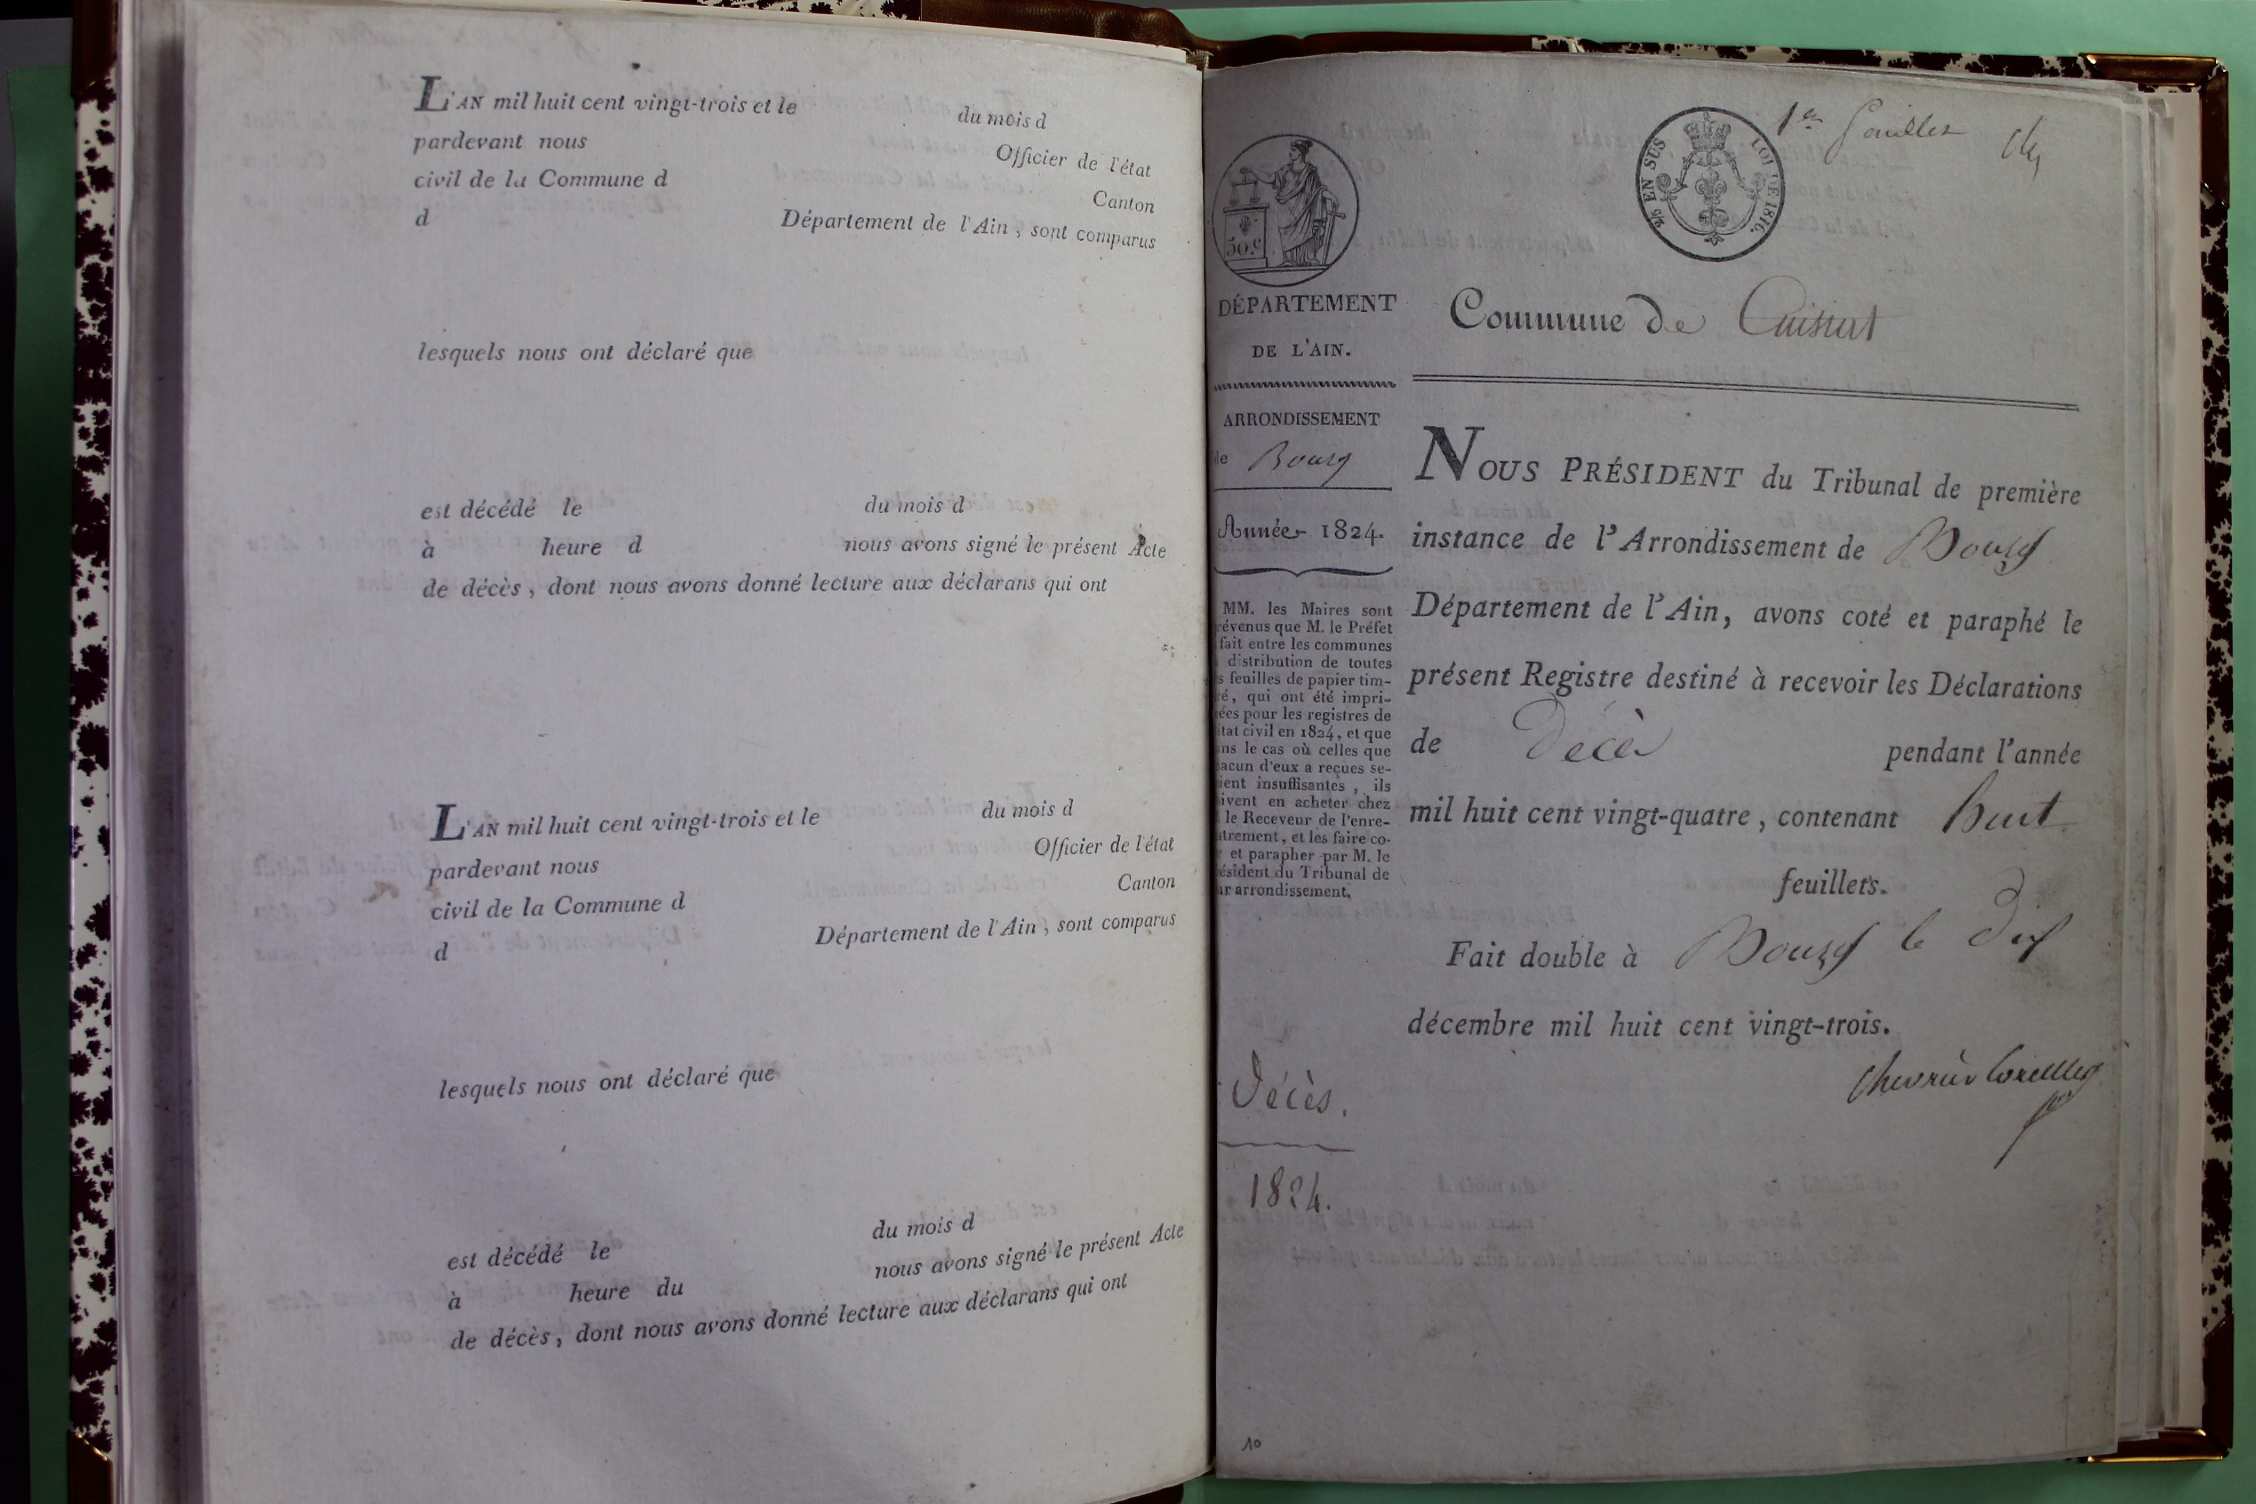 L'AN mil huit cent vingt-trois et le du mois d
pardevant nous Officier de l'état
civil de la Commune d Canton
d Département de l'Ain, sont comparus
lesquels nous ont déclaré que
est décédé le du mois d
à heure d nous avons signé le présent Acte
de décès, dont nous avons donné lecture aux déclarans qui ont
L'AN mil huit cent vingt-trois et le du mois d
pardevant nous Officier de l'état
civil de la Commune d Canton
d Département de l'Ain, sont comparus
lesquels nous ont déclaré que
est décédé le du mois d
à heure du nous avons signé le présent Acte
de décès, dont nous avons donné lecture aux déclarans qui ont
1er feuillet
EN SUS LOI DE 1816.
50.c
DÉPARTEMENT
DE L'AIN.
ARRONDISSEMENT
de Bourg
Année 1824.
MM. les Maires sont
révenus que M. le Préfet
fait entre les communes
distribution de toutes
s feuilles de papier tim-
ré, qui ont été impri-
ées pour les registres de
tat civil en 1824, et que
ns le cas où celles que
acun d'eux a reçues se-
ient insuffisantes, ils
ivent en acheter chez
le Receveur de l'enre-
trement, et les faire co-
r et parapher par M. le
ésident du Tribunal de
ur arrondissement.
Décès.
1824.
10
Commune de Cuisiat
NOUS PRÉSIDENT du Tribunal de première
instance de l'Arrondissement de Bourg
Département de l'Ain, avons coté et paraphé le
présent Registre destiné à recevoir les Déclarations
de Décès pendant l'année
mil huit cent vingt-quatre, contenant huit
feuillets.
Fait double à Bourg le dix
décembre mil huit cent vingt-trois.